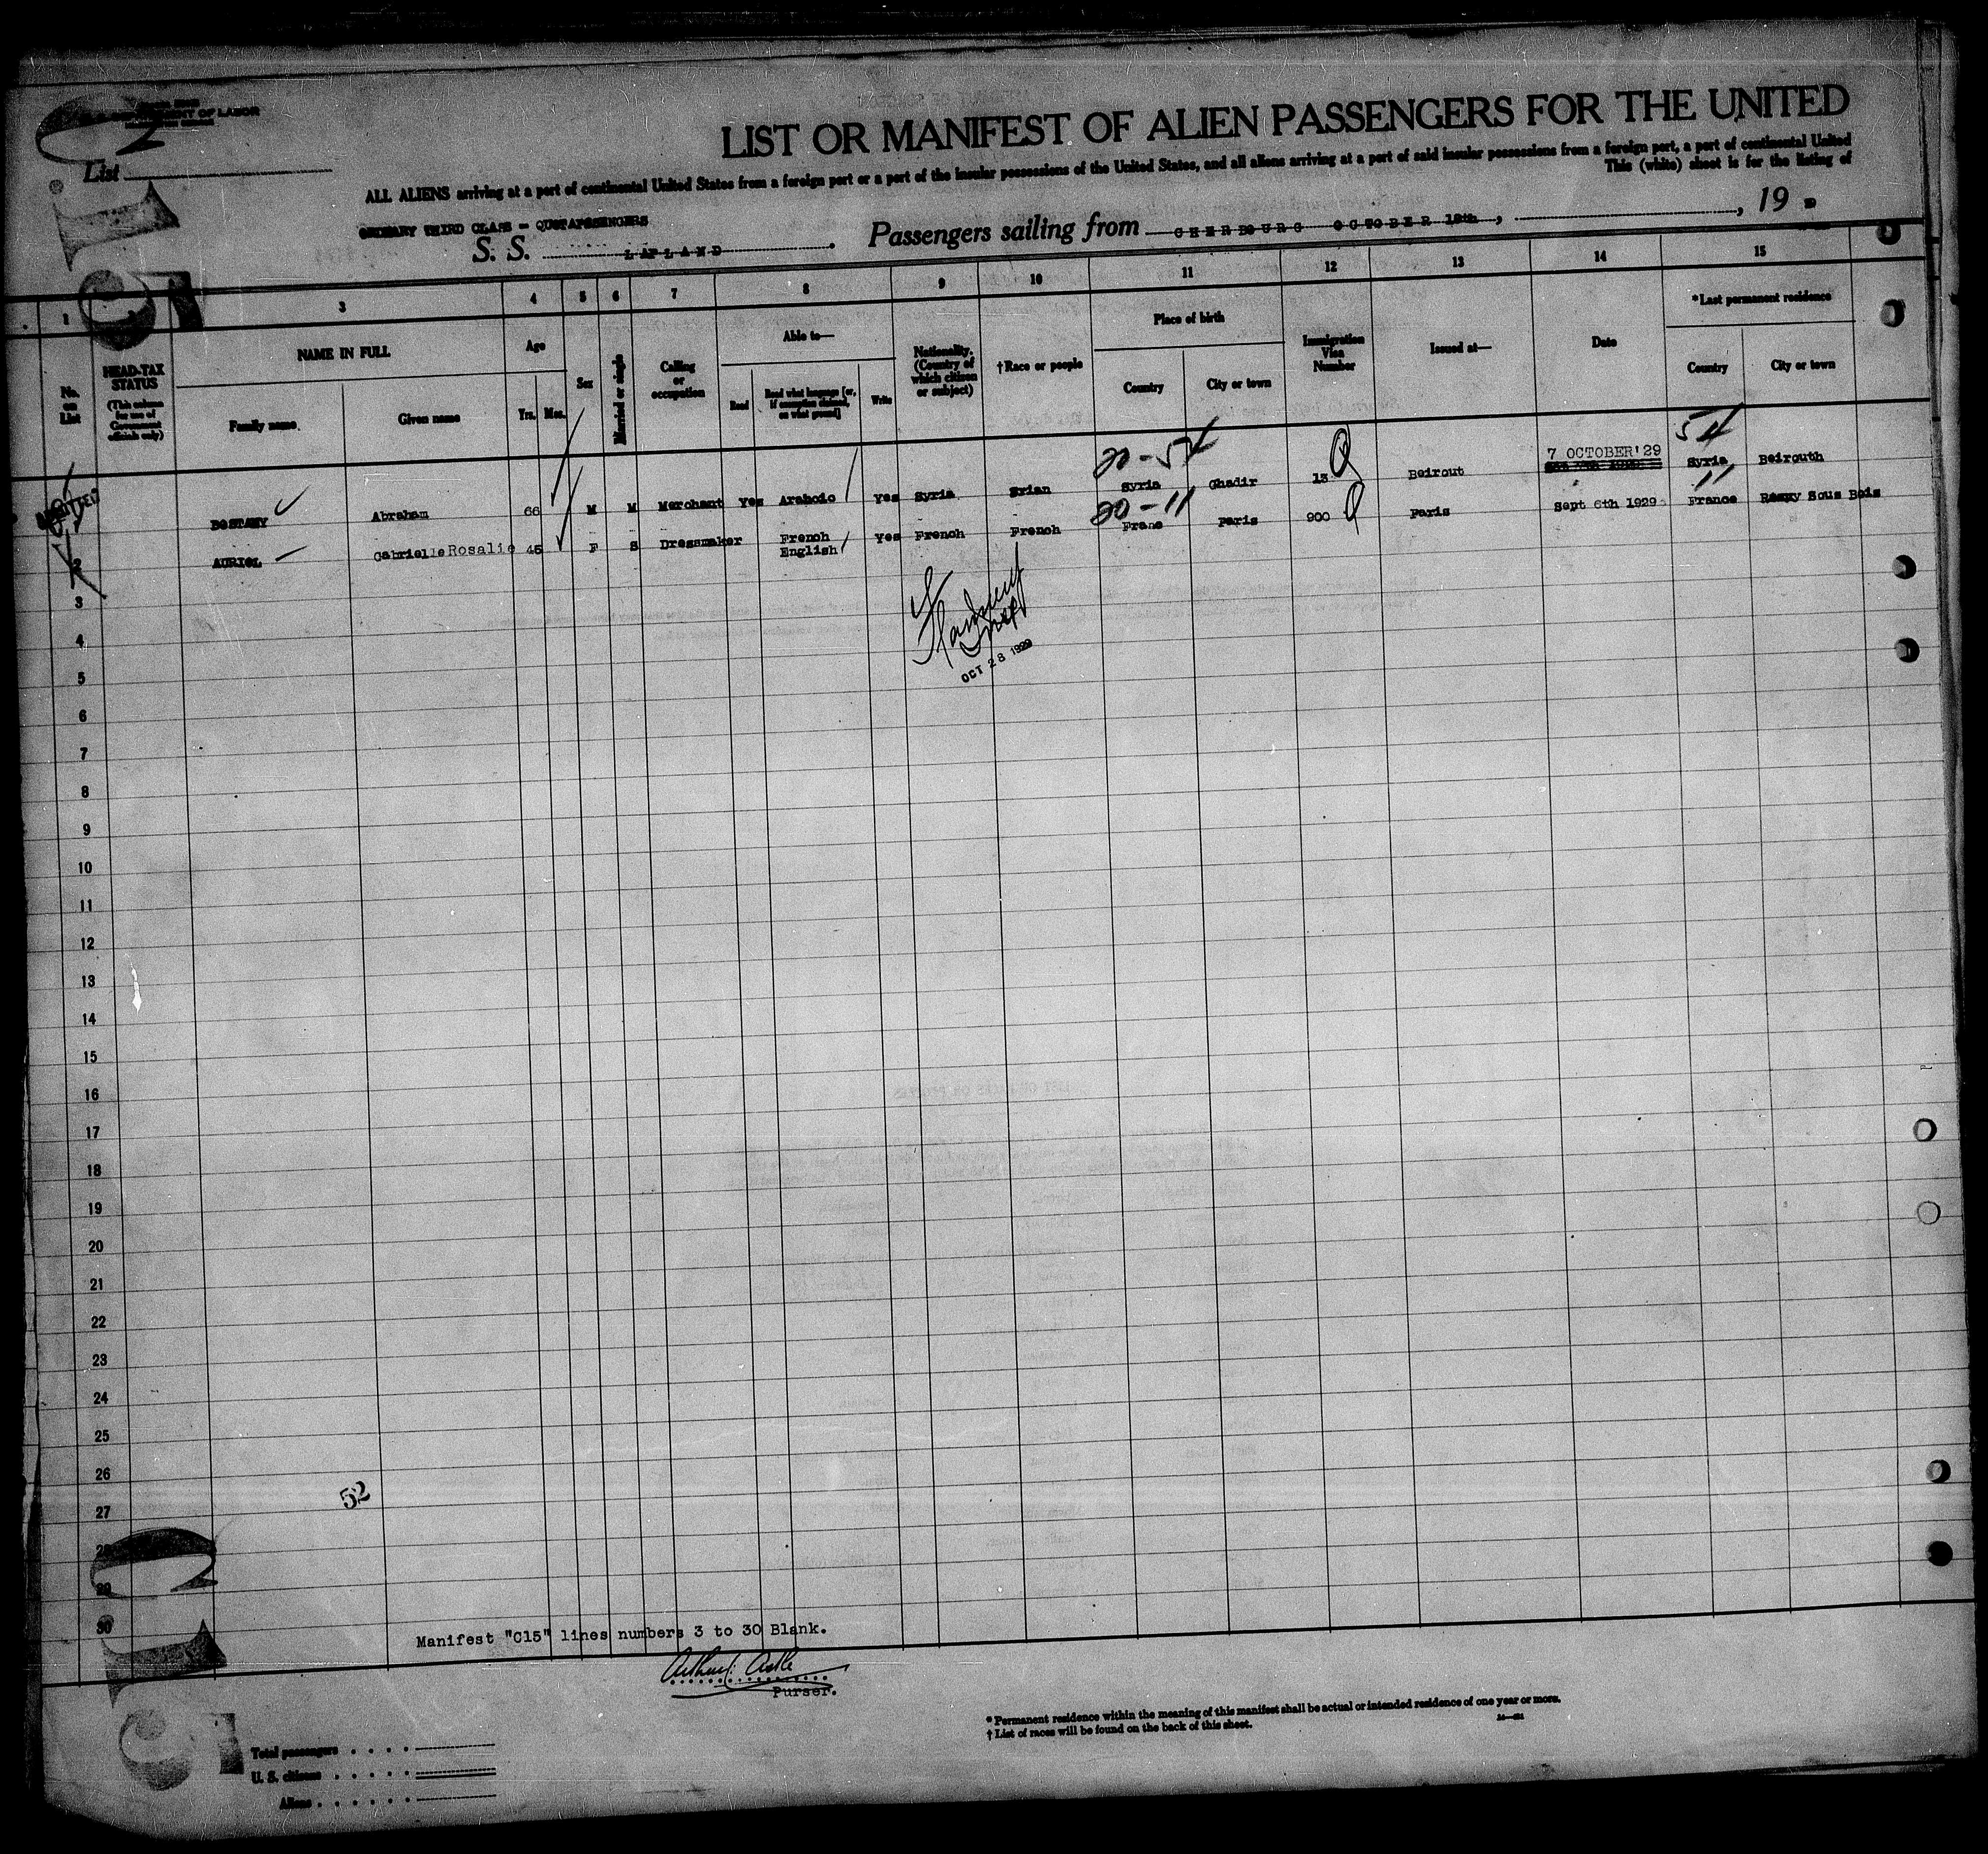 DEPARTMENT OF LABOR
List
LIST OR MANIFEST OF ALIEN PASSENGERS FOR THE UNITED
ALL ALIENS arriving at a port of continental United States from a foreign port or a port of the insular possessions of the United States, and all aliens arriving at a port of said insular possessions from a foreign port, a port of continental United
This (white) sheet is for the listing of
ORDINARY THIRD CLASS - QUOTAPASSENGERS
S. S. LAPLAND. Passengers sailing from CHERBOURG OCTOBER 18th, , 19
1 3 4 5 6 7 8 9 10 11 12 13 14 15
No. on List
HEAD-TAX STATUS (This column for use of Government officials only)
NAME IN FULL
Family name
Given name
Age
Yrs. Mos.
Sex
Married or single
Calling or occupation
Able to—
Read
Read what language [or, if exemption claimed, on what ground]
Write
Nationality. (Country of which citizen or subject)
†Race or people
Place of birth
Country
City or town
Immigration Visa Number
Issued at—
Date
*Last permanent residence
Country
City or town
20-54
54
ADMITTED
BOSTANY Abraham 66 M M Merchant Yes Arabcic Yes Syria Srian Syria Ghadir 13 Q Beirout 7 OCTOBER'29 Syria Beirouth
20-11
11
2 AURIOL Gabrielle Rosalie 45 F S Dressmaker French English Yes French French Frane Paris 900 Q Paris Sept 6th 1929 France Rosny Sous Bois
3
4
OCT 28 1929
5
6
7
8
9
10
11
12
13
14
15
16
17
18
19
20
21
22
23
24
25
26
52
27
28
29
30
Manifest "C15" lines numbers 3 to 30 Blank.
Purser.
* Permanent residence within the meaning of this manifest shall be actual or intended residence of one year or more.
† List of races will be found on the back of this sheet.
Total passengers
U. S. citizens
Aliens